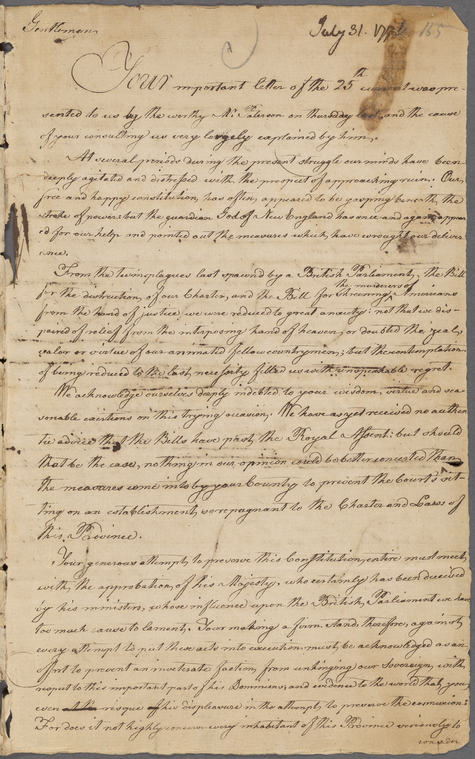 Gentlemen
July 31. 177 165
Your important letter of the 25th was pre-
sented to us by the worthy Mr. Paterson on thursday last, and the cause
of your consulting us very largely explained by him.
At several periods during the present struggle our minds have been
deeply agitated and distressed with the prospect of approaching ruin: Our
free and happy constitution, has often appeared to be gasping beneath the
stroke of power: but the guardian God of New England has once and again appear
ed for our help and pointed out the measures which, have wrought our deliver-
ance.
From the twin plagues last spawned by a British Parliament; the Bill
for the destruction, of our Charter, and the Bill for Screening the murderers of Americans
from the hand of justice, we were reduced to great anxiety: not that we des-
paired of relief from the interposing hand of heaven; or doubted the zeal,
valor or virtue of our animated fellow countrymen; but the contemplation
of being reduced to the last necessity filled us with unspeakable regret.
We acknowledge ourselves deeply indebted to your wisdom, virtue and sea-
sonable exertions on this trying occasion; We have as yet received no authen
tic advice that the Bills have past the Royal Assent: but should
that be the case, nothing in our opinion could be better concerted than
the measures come into by your County to prevent the Court's sit-
ting on an establishment, so repugnant to the Charter and Laws of
this Province.
Your generous attempt, to preserve this Constitution, entire must meet
with, the approbation, of his Majesty, who certainly has been deceived
by his ministers, whose influence upon the British, Parliament we have
too much cause to lament. Your making a firm Stand therefore, against
every attempt to put these acts into execution must be acknowledged as an
effort to prevent an inveterate faction, from unhinging our Sovereign, with
respect to this important part of his Dominions, and evidence to the world that you
even risque his displeasure in the attempt, to preserve the connexion:
For does it not highly concern every inhabitant of this Province seriously to
consider